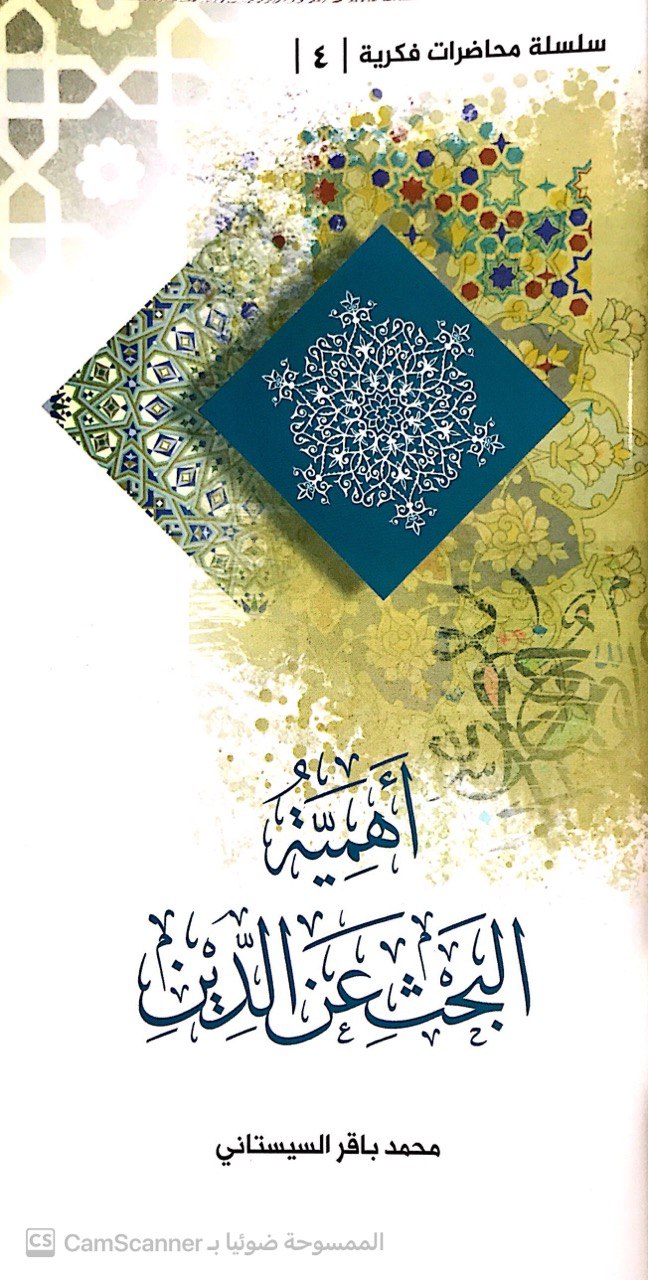 سلسلة محاضرات فكرية | ٤ |
أَهَمِيَّةُ
البَحْثِ عَنِ الدِّيْنِ
محمد باقر السيستاني
الممسوحة ضوئيا بـ CamScanner
CS